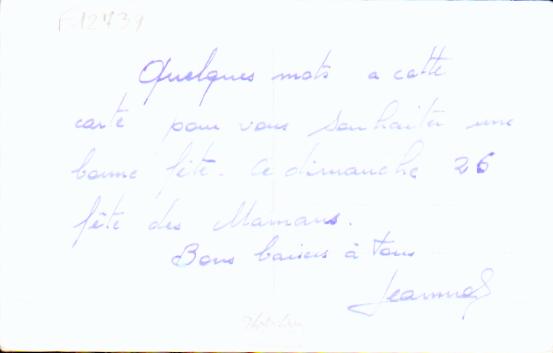 F 12439
Quelques mots a cette
carte pour vous souhaiter une
bonne fête. Ce dimanche 26
fête des Mamans.
Bons baisers à tous